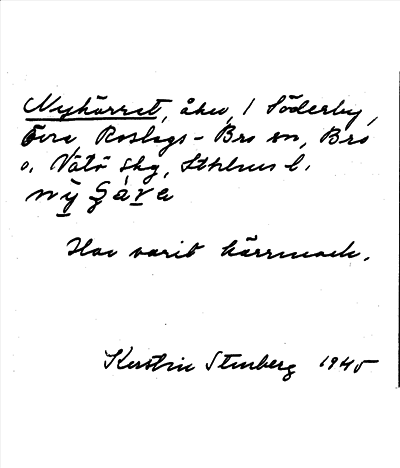 Nykärret, åker, i Söderby,
Övre Roslags-Bro sn, Bro
o. Vätö skg, Sthlms l.
Har varit kärrmark.
Kerstin Stenberg 1945